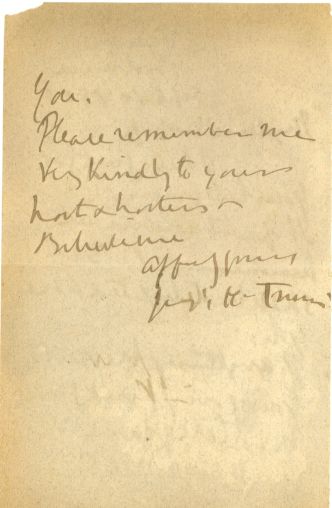 You.
Please remember me
very kindly to your
host & hostess &
Believe me
affec yours